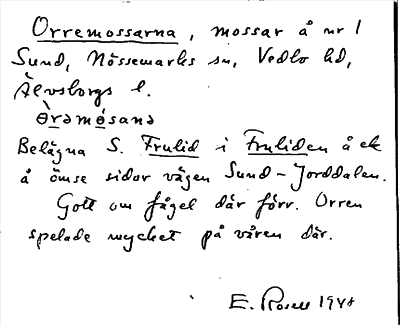 Orremossarna, mossar å nr 1
Sund, Nössemarks sn, Vedbo hd,
Älvsborgs l.
òrəmósanə
Belägna S. Frulid i Fruliden å ek
å ömse sidor vägen Sund-Jorddalen.
Gott om fågel där förr. Orren
spelade mycket på våren där.
E. Rosell 1948